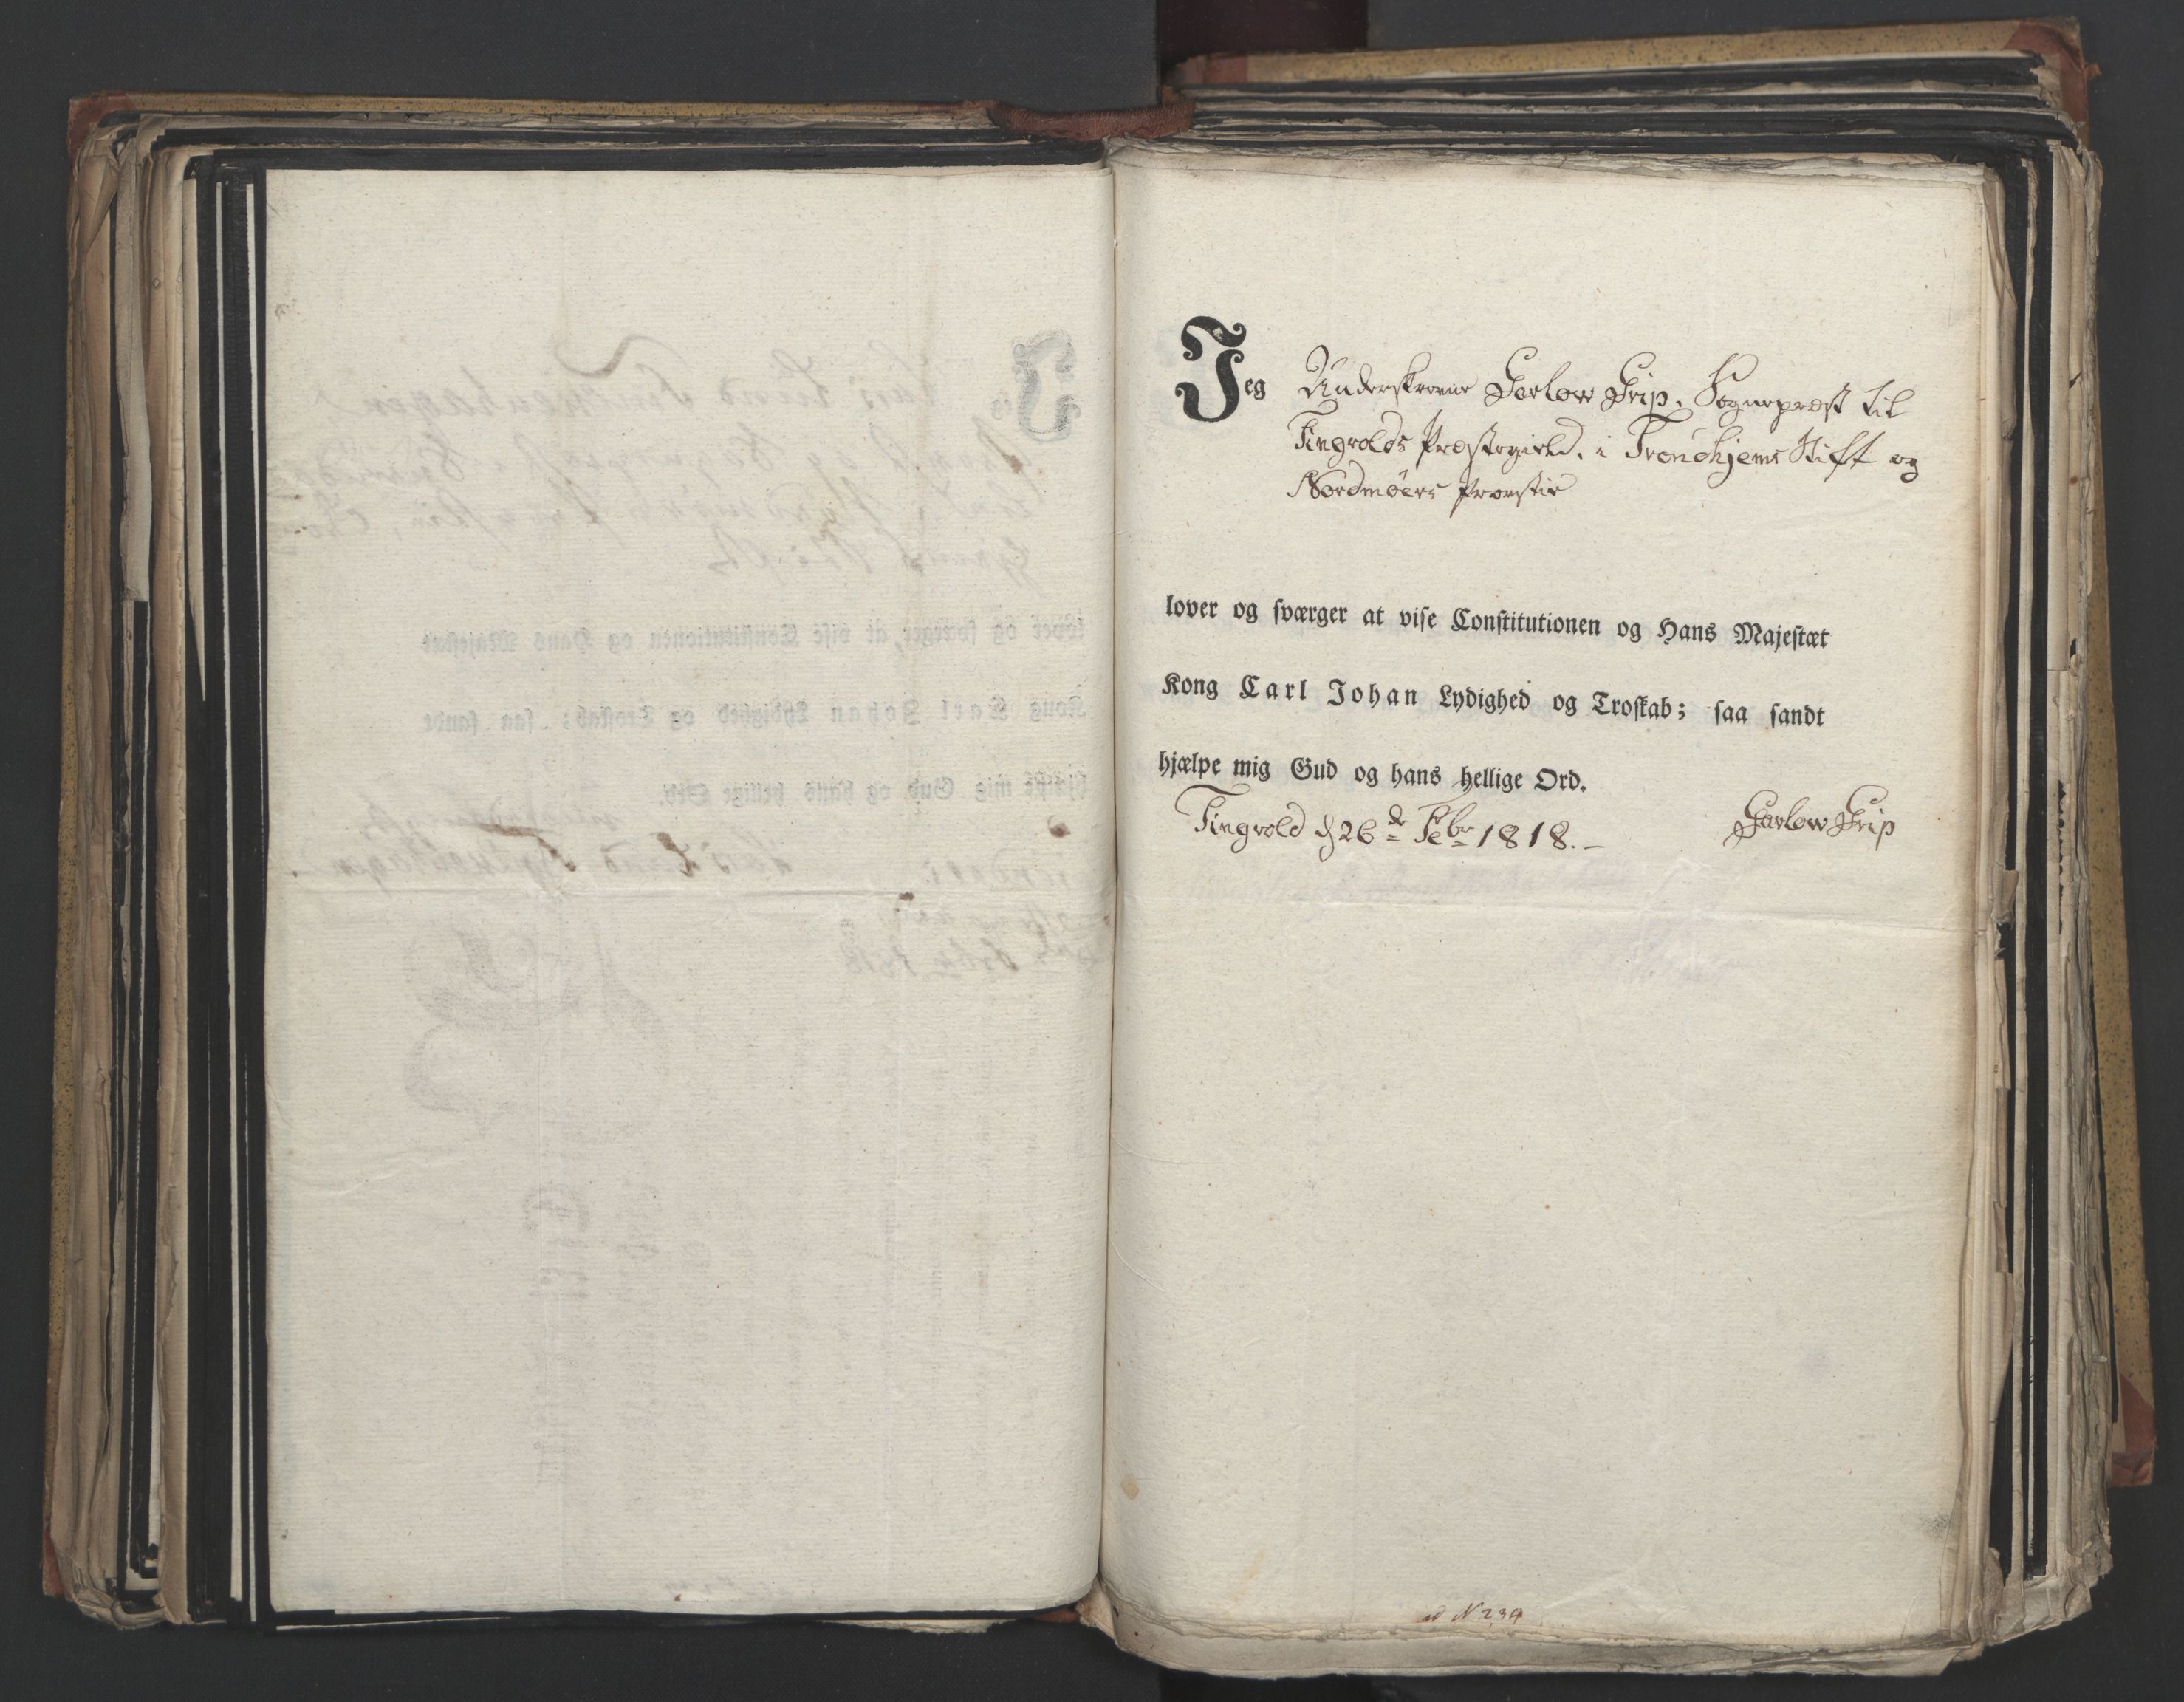 Jeg Underskrevne Gørlow Grip, Sognepræst til
Tingvolds Præstegield, i Trondhjems Stift og
Nordmöers Provstie
lover og sværger at vise Constitutionen og Hans Majestæt
Kong Carl Johan Lydighed og Troskab; saa sandt
hjælpe mig Gud og hans hellige Ord.
Tingvold d 26de Febr 1818.–
Gørlow Grip
ad N 234